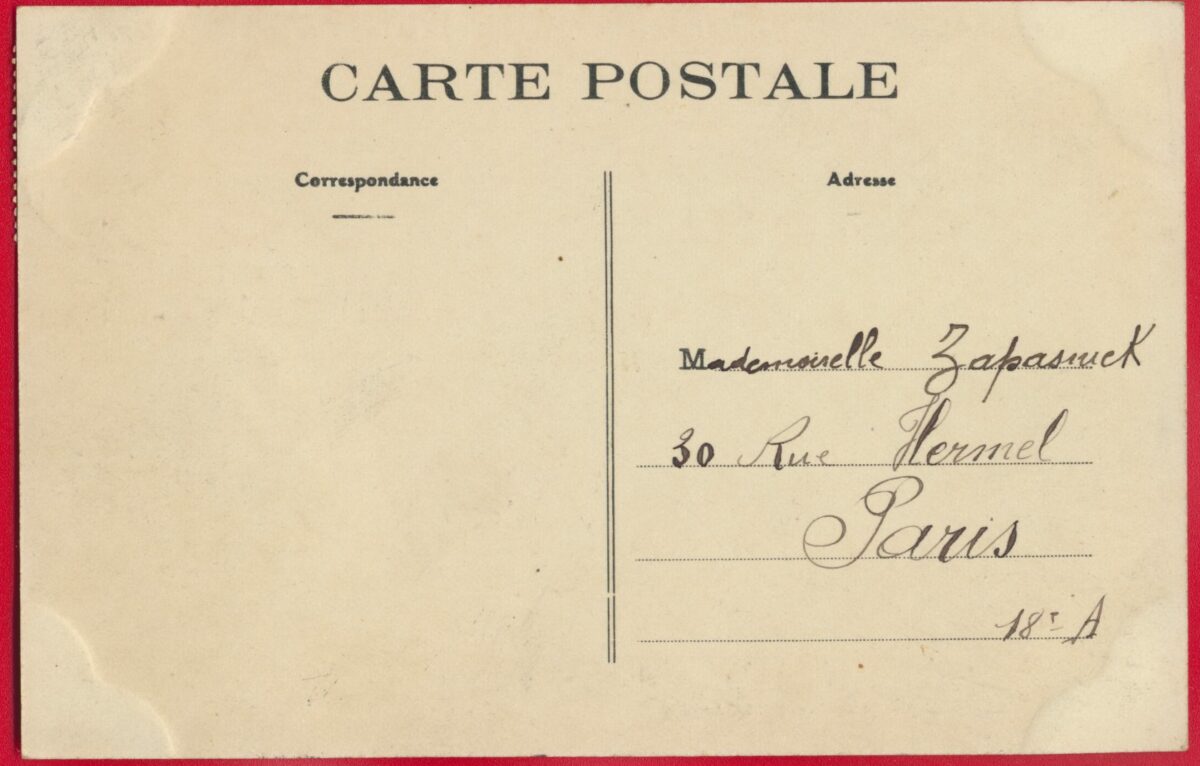 CARTE POSTALE
Correspondance
Adresse
Mademoiselle Zapasnick
30 Rue Hermel
Paris
18e A